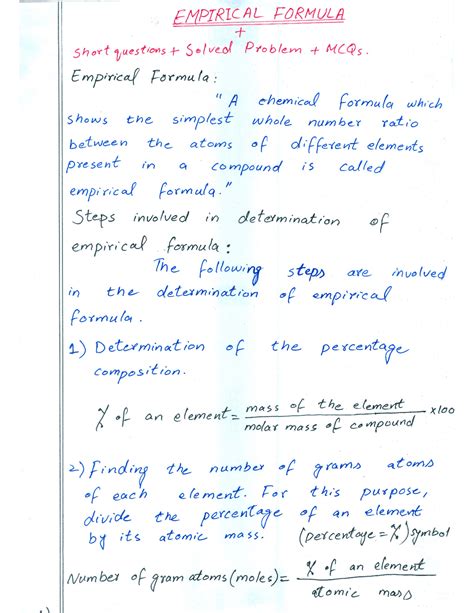 EMPIRICAL FORMULA
+
Short questions + Solved Problem + MCQs.
Empirical Formula:
"A chemical formula which
shows the simplest whole number ratio
between the atoms of different elements
present in a compound is called
empirical formula."
Steps involved in determination of
empirical formula:
The following steps are involved
in the determination of empirical
formula.
1) Determination of the percentage
composition.
% of an element = mass of the element / molar mass of compound x100
2) Finding the number of grams atoms
of each element. For this purpose,
divide the percentage of an element
by its atomic mass. (percentage = %) symbol
Number of gram atoms (moles) = % of an element / atomic mass